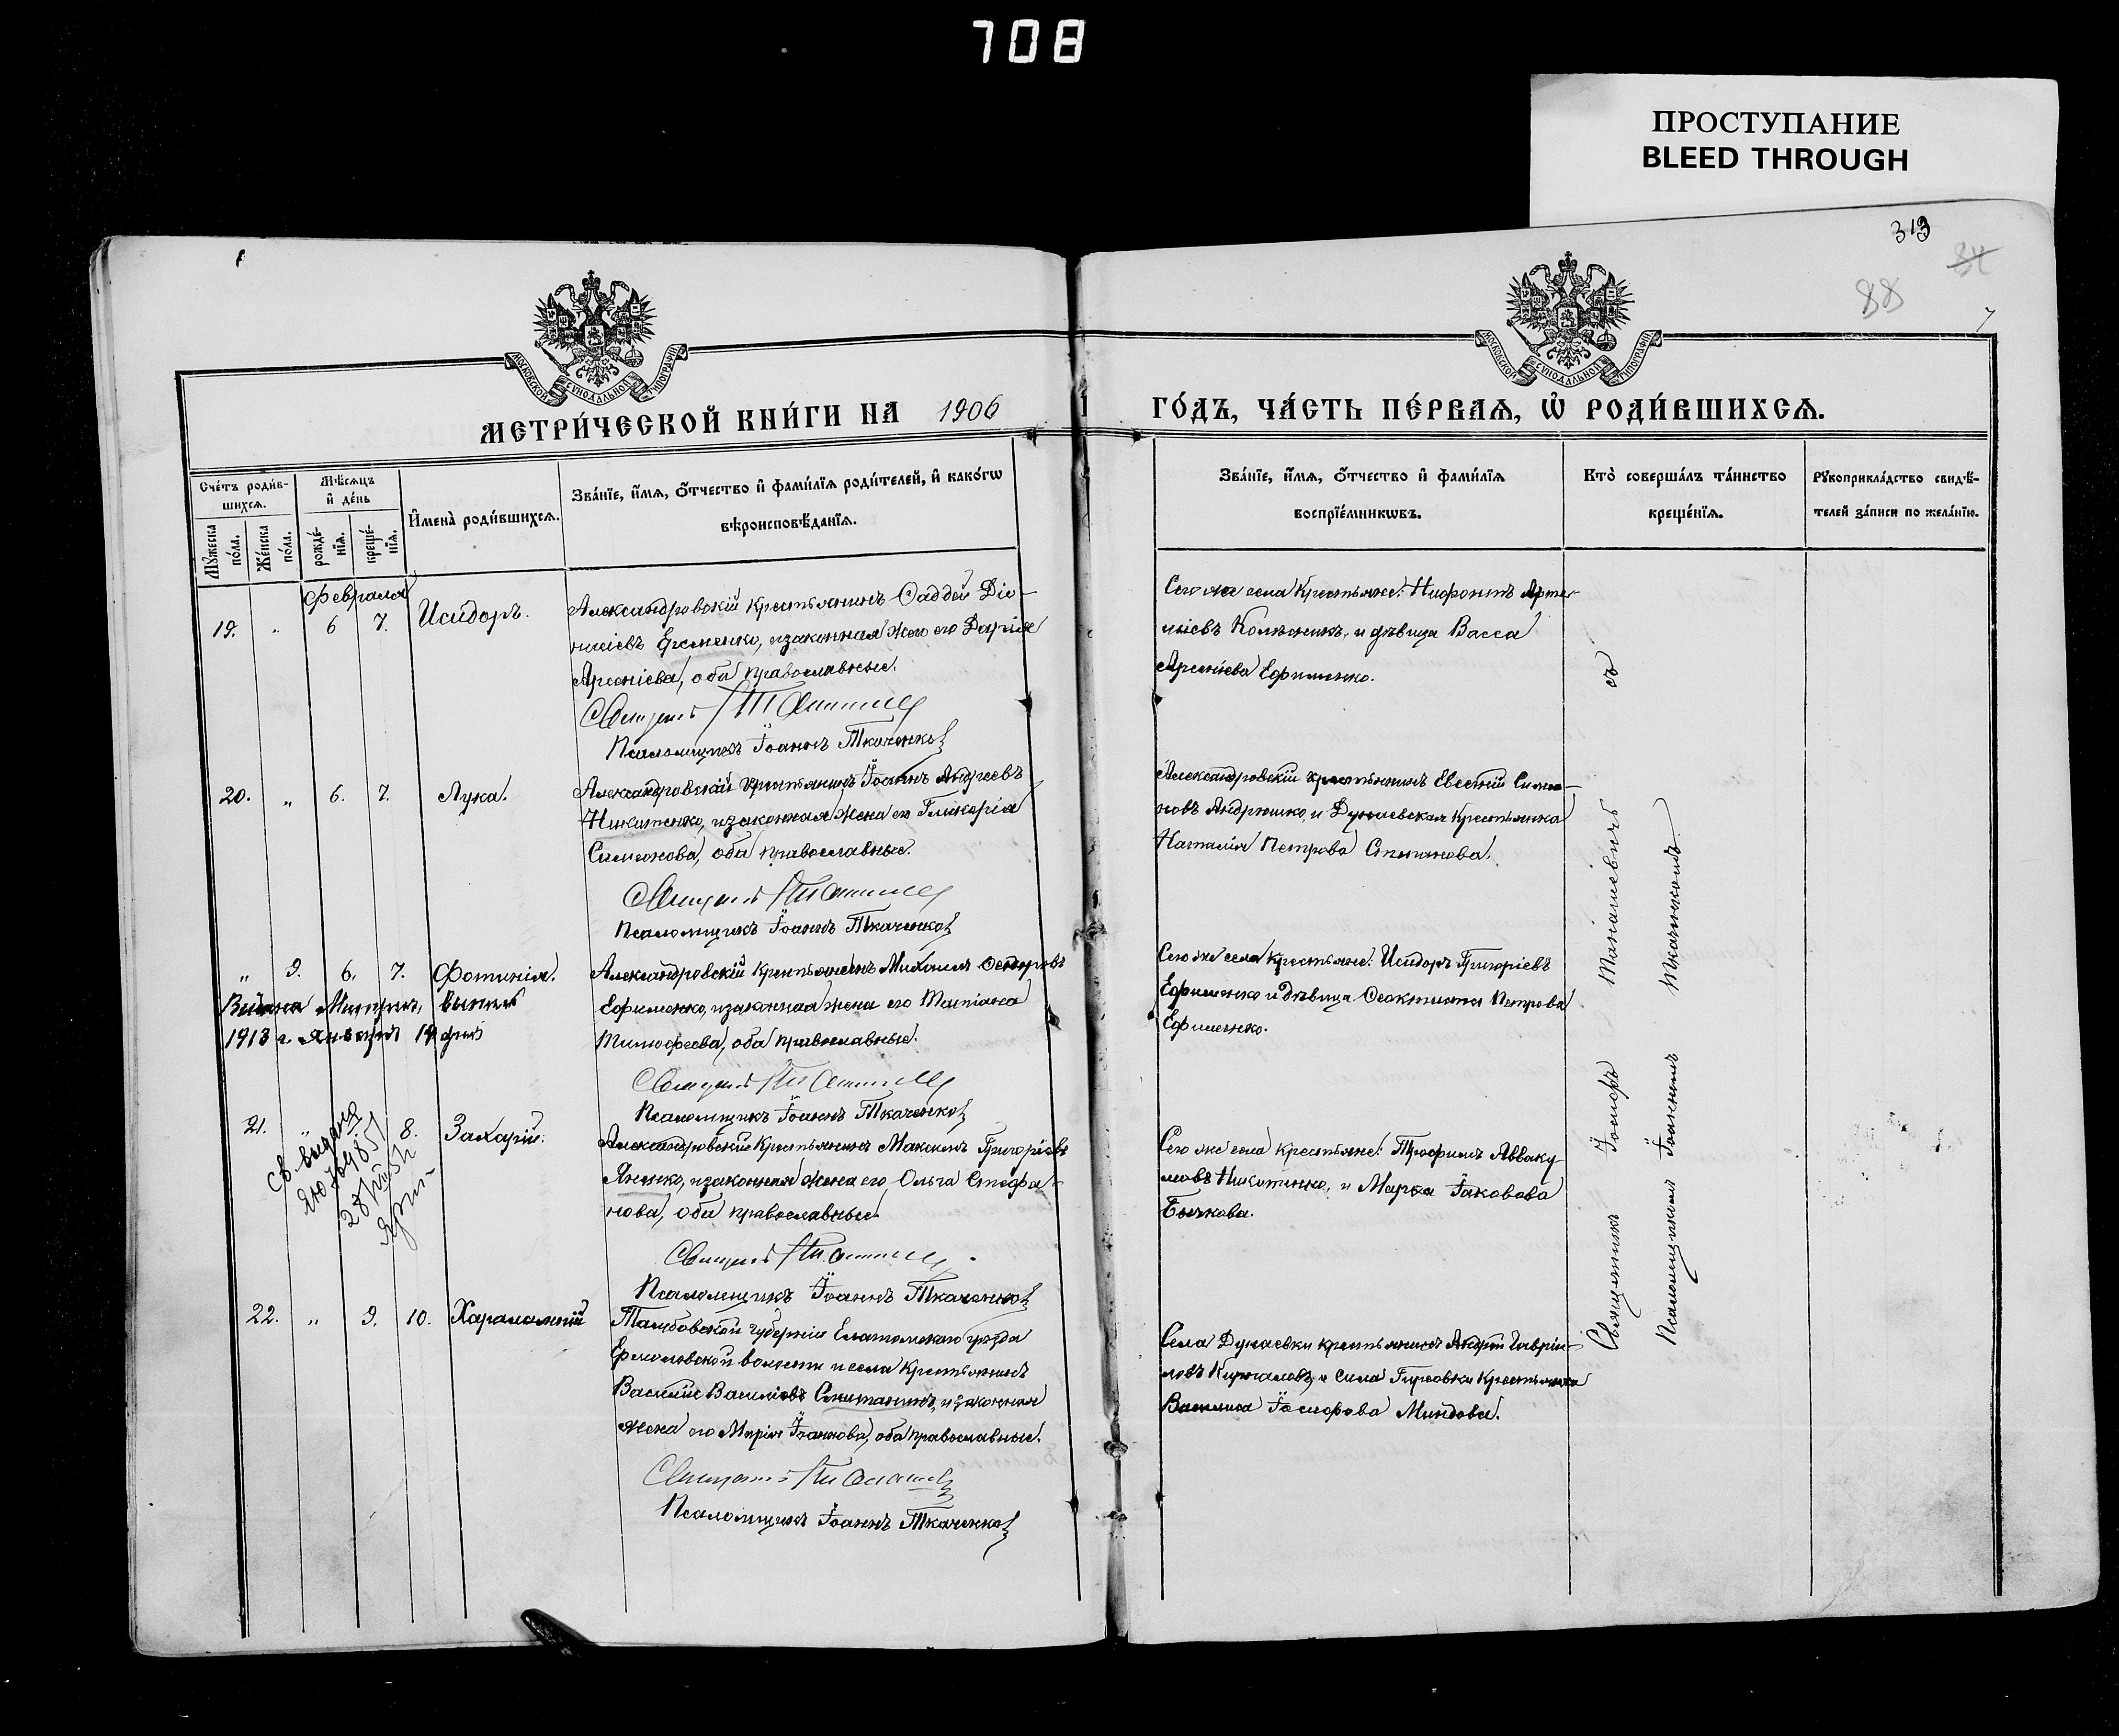 708
ПРОСТУПАНИЕ
BLEED THROUGH
313
88
7
МОСКОВСКОЙ СѴНОДАЛЬНОЙ ТИПОГРАФІИ
МОСКОВСКОЙ СѴНОДАЛЬНОЙ ТИПОГРАФІИ
МЕТРИ́ЧЕСКОЙ КНИ́ГИ НА 1906
ГО́ДЪ, ЧА́СТЬ ПЕ́РВАѦ, Ѡ҆ РОДИ́ВШИХСѦ.
Сче́тъ роди́в-
шихсѧ.
Мꙋ́жеска по́ла.
Же́нска по́ла.
Мѣ́сѧцъ
и҆ де́нь
рожде́-
нїѧ.
креще́-
нїѧ.
И҆мена̀ роди́вшихсѧ.
Зва́нїе, и҆́мѧ, ѻ҆́тчество и҆ фами́лїѧ роди́телей, и҆ како́гѡ
вѣроисповѣ́данїѧ.
Зва́нїе, и҆́мѧ, ѻ҆́тчество и҆ фами́лїѧ
воспрїе́мникѡвъ.
Кто̀ соверша́лъ та́инство
креще́нїѧ.
Рꙋкоприкла́дство свидѣ́-
телей за́писи по жела́нїю.
Февраля
19. " 6 7. Исидоръ.
Александровскій крестьянинъ Фаддей Діо-
нисіевъ Еременко, и законная жена его Дарія
Арсеніева, оба православные.
Псаломщикъ Іоаннъ Ткаченко
Сего же села крестьяне: Нифонтъ Арте-
міевъ и дѣвица Васса
Арсеніева Ефименко.
20. " 6. 7. Лука.
Александровскій крестьянинъ Іоаннъ Андреевъ
Никитенко, и законная жена его Гликерія
Симеонова, оба православные.
Псаломщикъ Іоаннъ Ткаченко
Александровскій крестьянинъ Евсевій Симео-
новъ Андрюшко, и Дунаевская крестьянка
Наталія Петрова Степанова.
" 9. 6. 7. Фотинія.
Выдана Метрич. выпись
1913 г. Января 14 дня
Александровскій крестьянинъ Михаилъ Ѳеодоровъ
Ефименко, и законная жена его Татіана
Тимофеева, оба православные.
Псаломщикъ Іоаннъ Ткаченко
Сего же села крестьяне: Исидоръ Григоріевъ
Ефименко и дѣвица Ѳеоктиста Петрова
Ефименко.
21. " 8. Захарій.
св. выдано
Александровскій крестьянинъ Максимъ Григоріевъ
Яненко, и законная жена его Ольга Стефа-
нова, оба православные.
Псаломщикъ Іоаннъ Ткаченко
Сего же села крестьяне: Трофимъ Авваку-
мовъ Никитенко, и Марѳа Іаковова
Бычкова.
22. " 9. 10. Харалампій
Тамбовской губерніи Елатомскаго уѣзда
Ермоловской волости и села крестьянинъ
Василій Василіевъ и законная
жена его Марія Іоаннова, оба православные.
Псаломщикъ Іоаннъ Ткаченко
Села Дунаевки крестьянинъ Андрей Гавріи-
ловъ и села Гирсовки крестьянка
Василиса
Священникъ Іосифъ
съ
Псаломщикомъ Іоанномъ Ткаченкомъ.